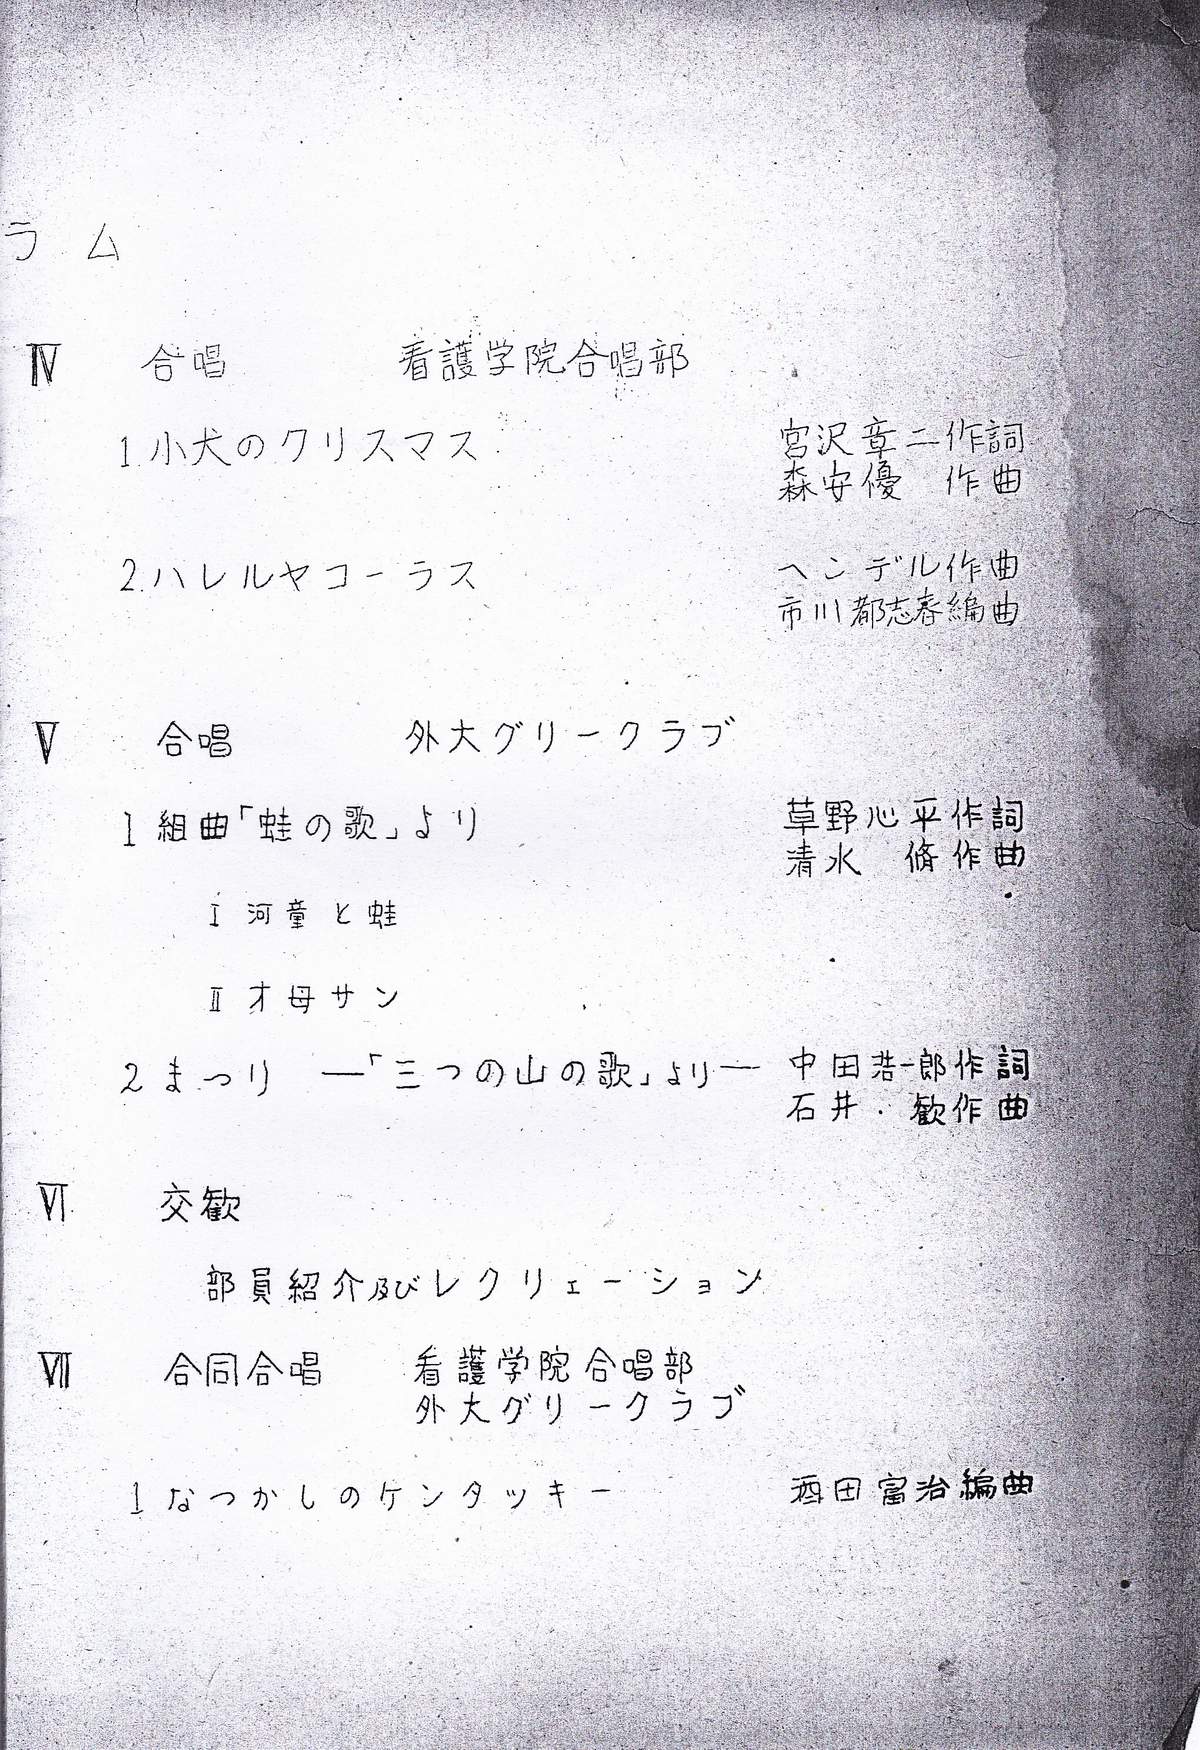 ラム
Ⅳ 合唱 看護学院合唱部
1 小犬のクリスマス 宮沢章二作詞
森安優 作曲
2. ハレルヤコーラス ヘンデル作曲
市川都志春編曲
Ⅴ 合唱 外大グリークラブ
1 組曲「蛙の歌」より 草野心平作詞
清水 脩作曲
Ⅰ 河童と蛙
Ⅱ オ母サン
2 まつり ―「三つの山の歌」より― 中田浩一郎作詞
石井 歓作曲
Ⅵ 交歓
部員紹介及びレクリェーション
Ⅶ 合同合唱 看護学院合唱部
外大グリークラブ
1 なつかしのケンタッキー 酉田富治編曲